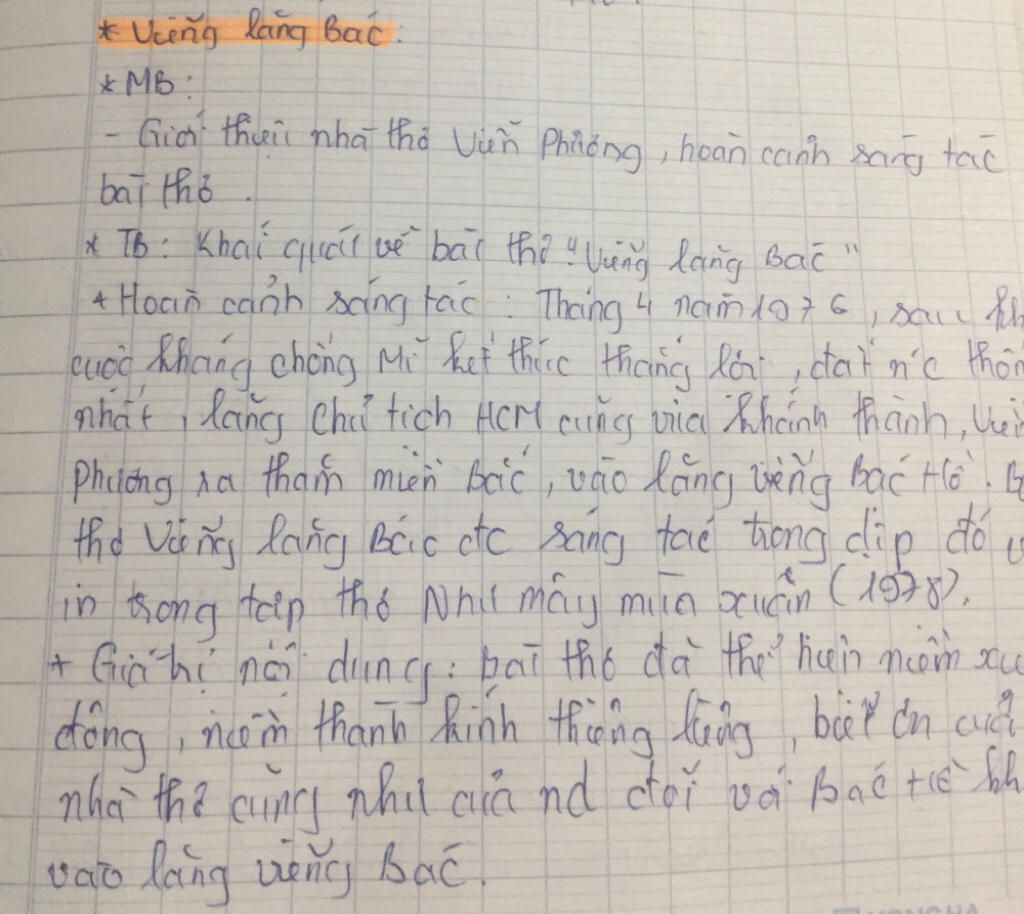 * Viếng lăng Bác.
* MB:
- Giới thiệu nhà thơ Viễn Phương, hoàn cảnh sáng tác
bài thơ.
* TB: Khái quát về bài thơ "Viếng lăng Bác"
+ Hoàn cảnh sáng tác: Tháng 4 năm 1976, sau kh
cuộc kháng chống Mĩ kết thúc thắng lợi, đất n'c thốn
nhất, lăng Chủ tịch HCM cũng vừa khánh thành, Viễ
Phương ra thăm miền Bắc, vào lăng viếng Bác Hồ. B
thơ Viếng lăng Bác đc sáng tác trong dịp đó v
in trong tập thơ Như mây mùa xuân (1978).
+ Giá trị nội dung: bài thơ đã thể hiện niềm xú
động, niềm thành kính thiêng liêng, biết ơn của
nhà thơ cũng như của nd đối với Bác Hồ kh
vào lăng viếng Bác.